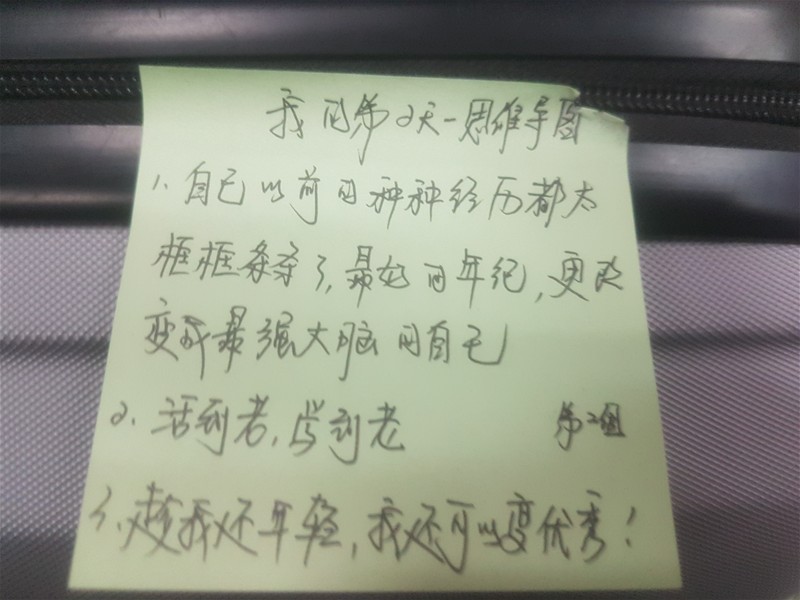 我的第2天-思维导图
1.自己以前的种种经历都太
框框条条了,最好的年纪,更改
变成最强大脑的自己
2.活到老,学到老
第2组
3.趁我还年轻,我还可以变优秀!